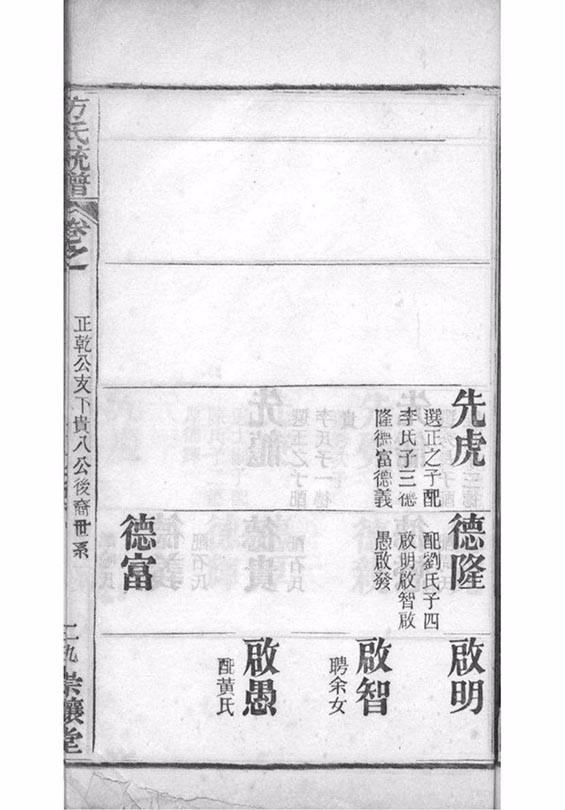 先虎
選正之子配
李氏子三德
隆德富德義
德隆
配劉氏子四
啟明啟智啟
愚啟發
德富
啟明
啟智
聘余女
啟愚
配黃氏
方氏統譜
卷之一
正乾公支下貴八公後裔世系
二九
崇讓堂